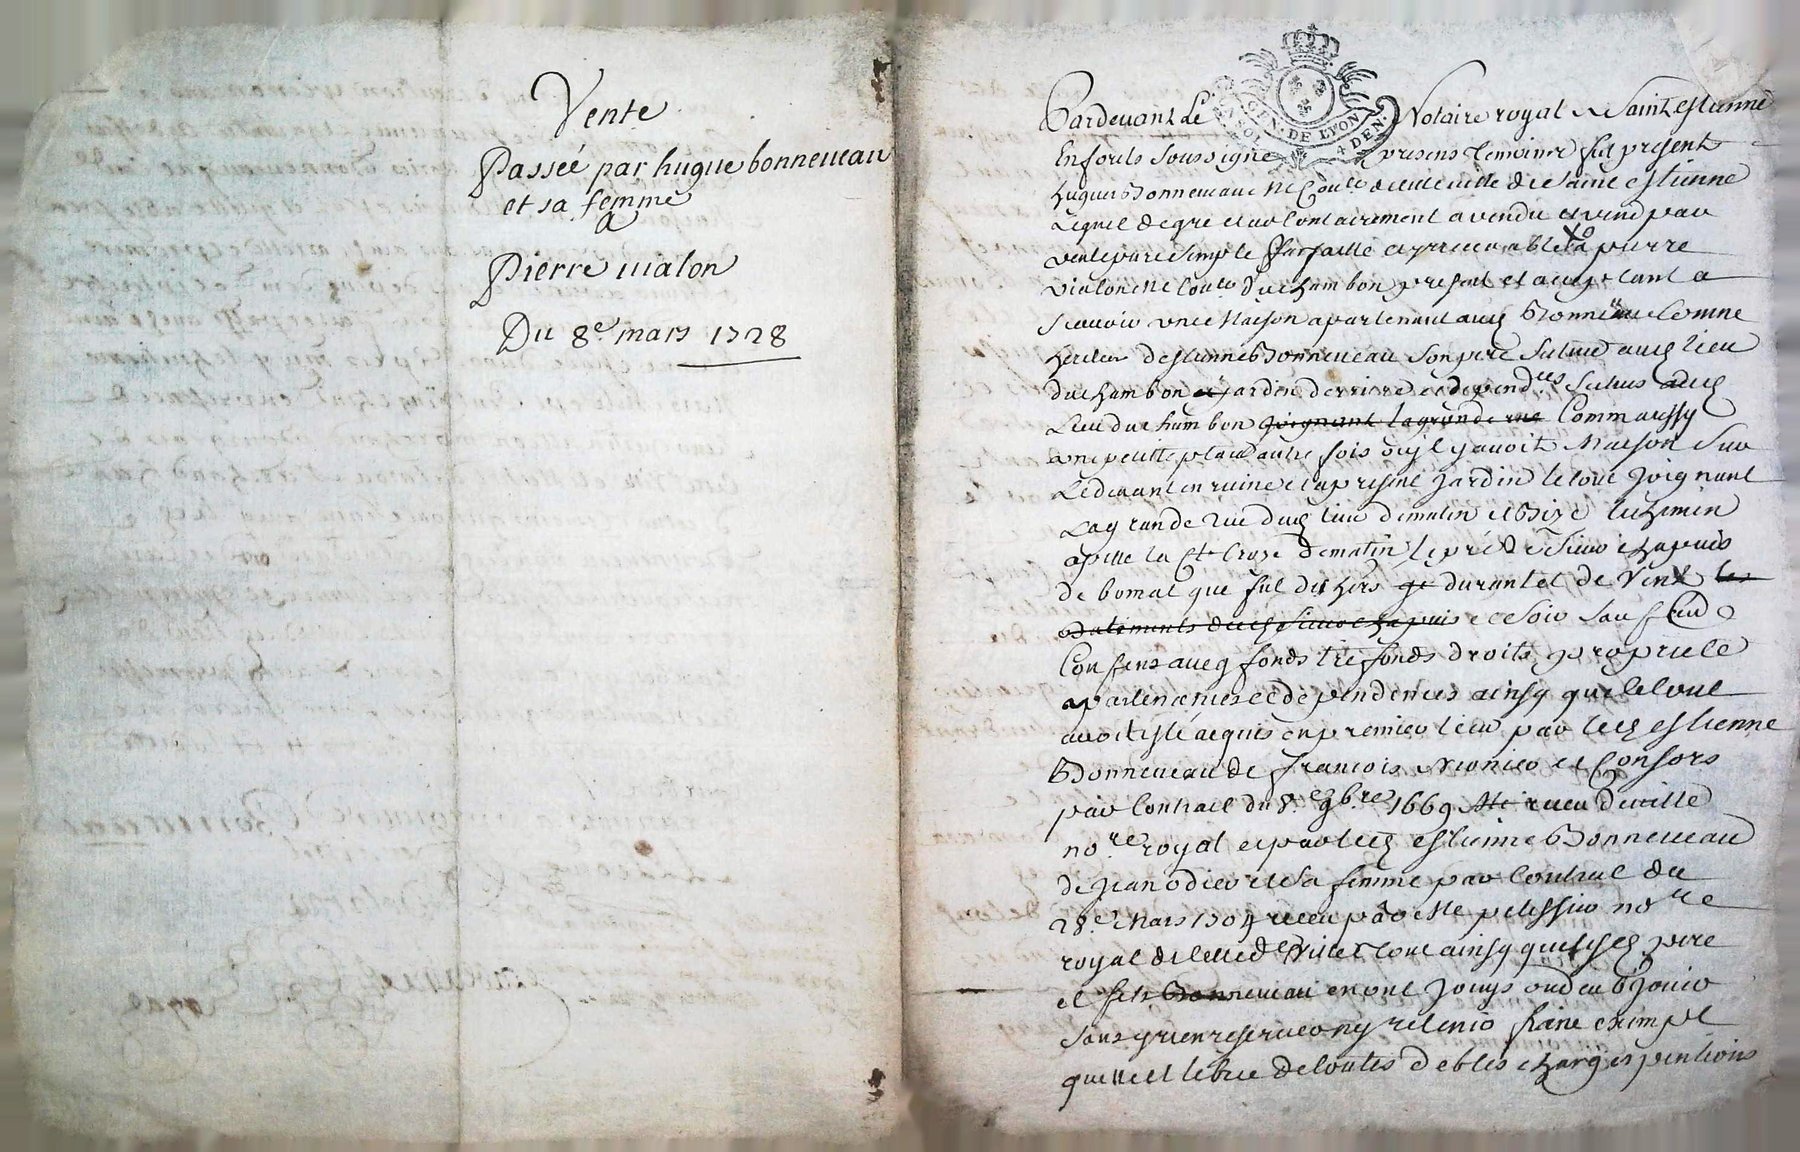 Vente
Passée par hugue bonneueau
et sa femme
A
Pierre uialon
Du 8e mars 1728
GEN. DE LYON
4 DEN.
Pardeuant Le Notaire royal de Saint estienne
En forets soussigné presens temoins fut present
hugues Bonneueau de Saint estienne
Lequel de gré et uolontairement a vendu et vend par
vente pure simple parfaitte et irreuocable a pierre
vialon du chambon present et aceptant a
scauoir une Maison apartenant audt Bonneueau Comme
heritier destienne Bonneueau son pere Scituée audt lieu
du chambon jardin derriere et dependces Scitués audt
Lieu du chambon joignant la grande rue Comm aussy
une petitte place autre fois ou il y auoit Maison sur
Le deuant en ruine et a present jardin le tout joignant
La grande rue dudt lieu de matin et Bize le chemin
de matin le pré de Sieur chapuis
de bomat que fut des hers durantet de vent les
batiments dudt sieur chapuis de soir sauf
Confins aueq fonds tresfonds droits proprieté
apartenences et dependences ainsy que le tout
auoit esté acquis en premier lieu par ledt estienne
Bonneueau de francois et Consors
par Contract du 8e 9bre 1669 receu Deuille
nore royal et par ledt estienne Bonneueau
de jean odier et sa femme par Contract du
28e Mars 1704 receu par Me pelissier nore
royal de lad ville tout ainsy que lesdt pere
et fils Bonneueau en ont jouy ou deub jouir
sans y rien reseruer ny retenir franc exempt
quitte et libre de toutes debtes charges pentions